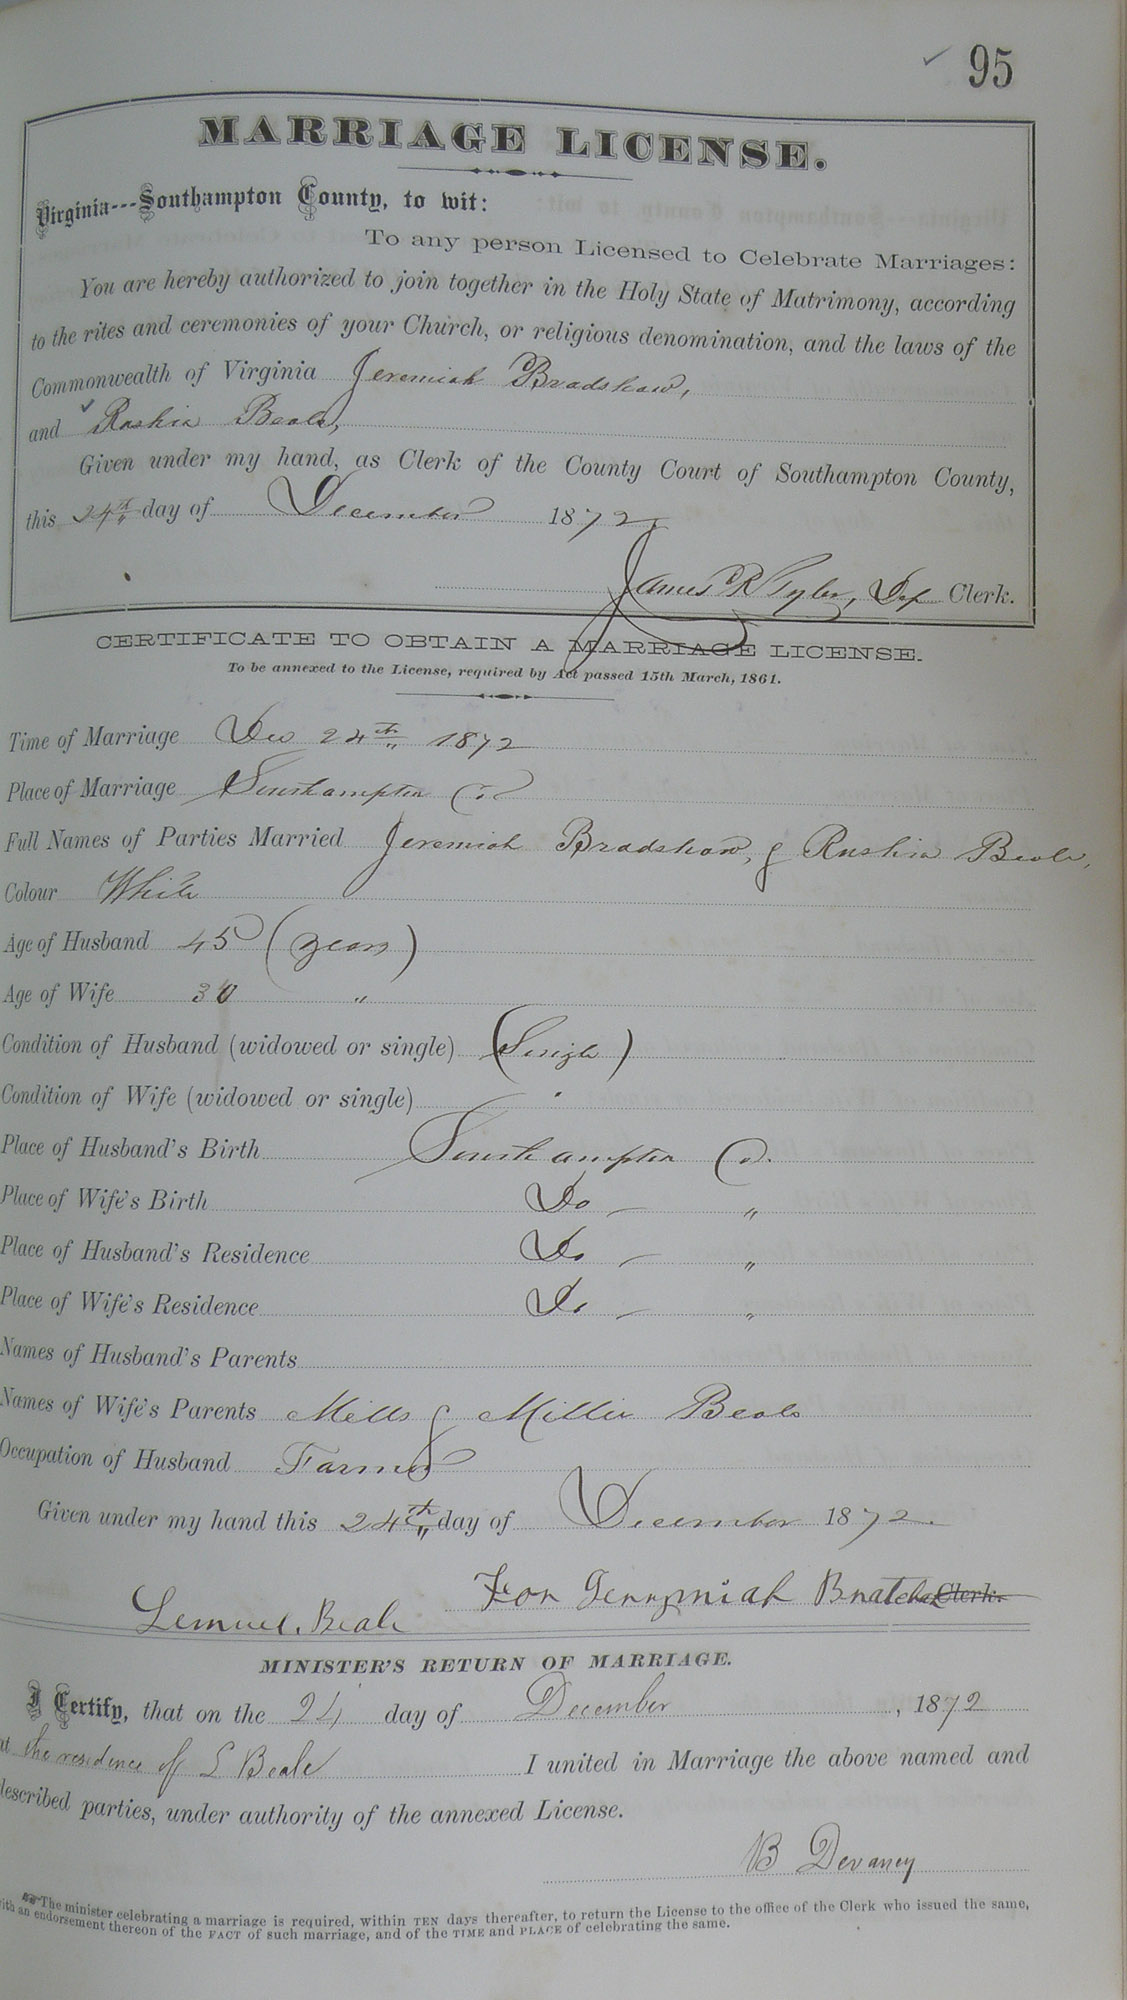 95
MARRIAGE LICENSE.
Virginia---Southampton County, to wit:
To any person Licensed to Celebrate Marriages:
You are hereby authorized to join together in the Holy State of Matrimony, according
to the rites and ceremonies of your Church, or religious denomination, and the laws of the
Commonwealth of Virginia Jeremiah Bradshaw,
and Rushia Beale,
Given under my hand, as Clerk of the County Court of Southampton County,
this 24th day of December 1872.
James R Tyler, Dep Clerk.
CERTIFICATE TO OBTAIN A MARRIAGE LICENSE.
To be annexed to the License, required by Act passed 15th March, 1861.
Time of Marriage Dec 24th 1872
Place of Marriage Southampton Co
Full Names of Parties Married Jeremiah Bradshaw, & Rushia Beale,
Colour White
Age of Husband 45 (years)
Age of Wife 30 "
Condition of Husband (widowed or single) (Single)
Condition of Wife (widowed or single) "
Place of Husband's Birth Southampton Co.
Place of Wife's Birth Do — "
Place of Husband's Residence Do — "
Place of Wife's Residence Do — "
Names of Husband's Parents
Names of Wife's Parents Mills & Millie Beale
Occupation of Husband Farmer
Given under my hand this 24th day of December 1872.
For Jerrymiah Clerk.
Lemuel. Beale
MINISTER'S RETURN OF MARRIAGE.
I Certify, that on the 24 day of December, 1872
at the residence of L Beale I united in Marriage the above named and
described parties, under authority of the annexed License.
B Devaney
The minister celebrating a marriage is required, within TEN days thereafter, to return the License to the office of the Clerk who issued the same,
with an endorsement thereon of the FACT of such marriage, and of the TIME and PLACE of celebrating the same.